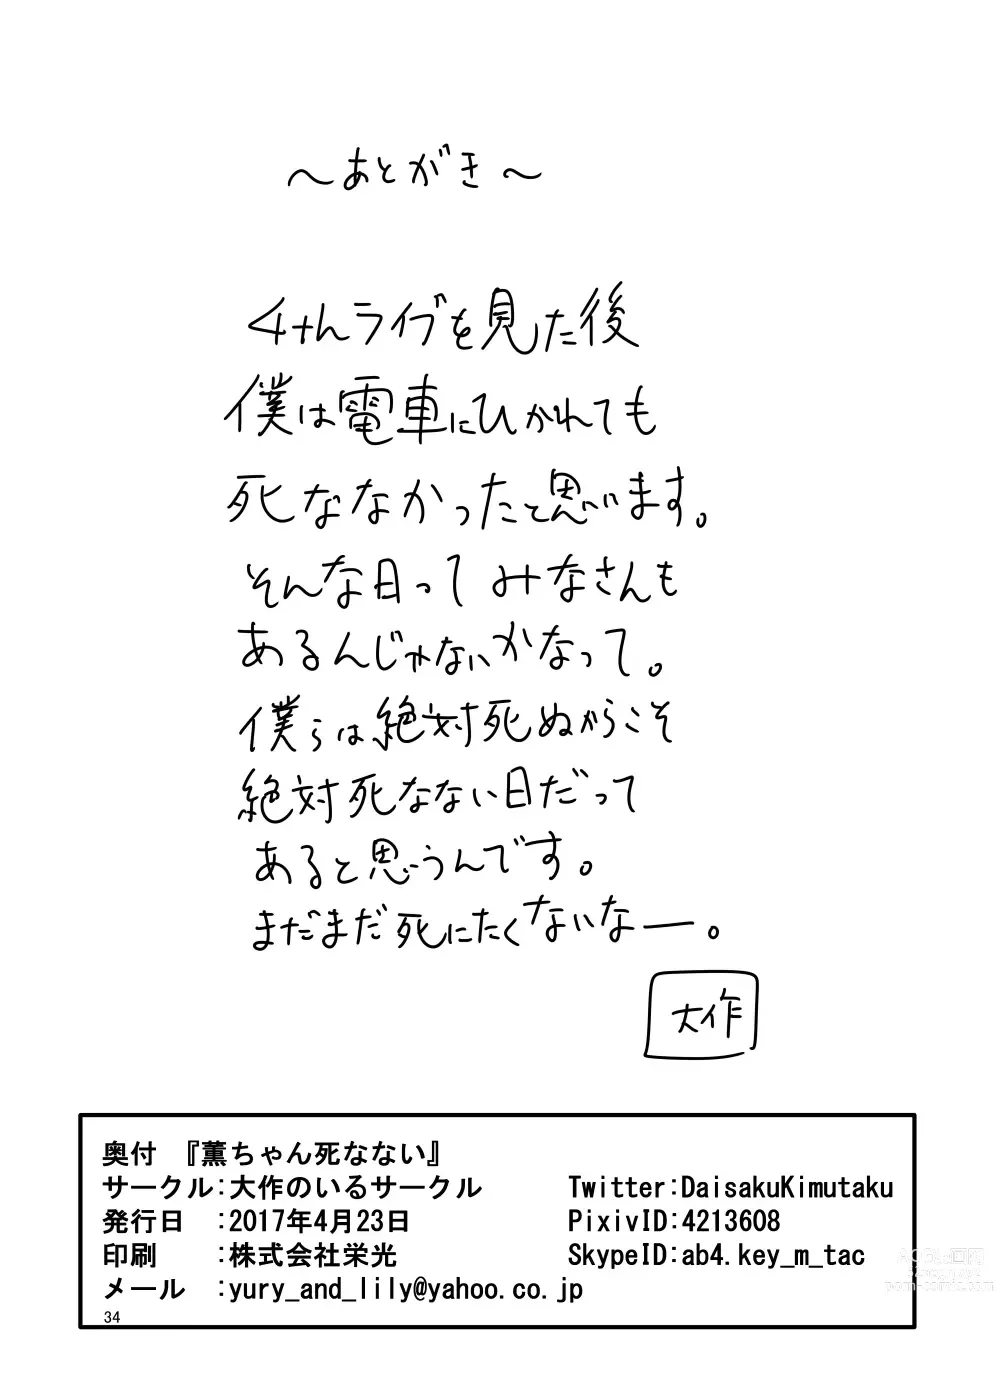 〜あとがき〜
4thライブを見た後
僕は電車にひかれても
死ななかったと思います。
そんな日ってみなさんも
あるんじゃないかなって。
僕らは絶対死ぬからこそ
絶対死なない日だって
あると思うんです。
まだまだ死にたくないなー。
大作
奥付 『薫ちゃん死なない』
サークル:大作のいるサークル Twitter:DaisakuKimutaku
発行日 :2017年4月23日 PixivID:4213608
印刷 :株式会社栄光 SkypeID:ab4.key_m_tac
メール :yury_and_lily@yahoo.co.jp
34